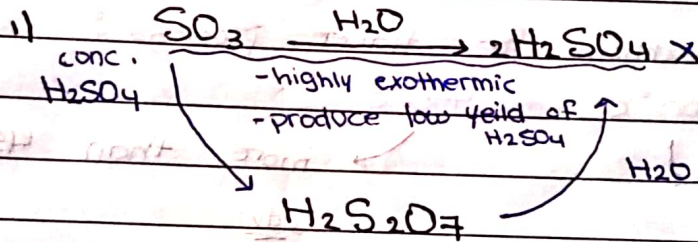 1) SO3 H2O → 2H2SO4 x
conc. H2SO4
-highly exothermic
-produce low yeild of H2SO4
H2O
H2S2O7